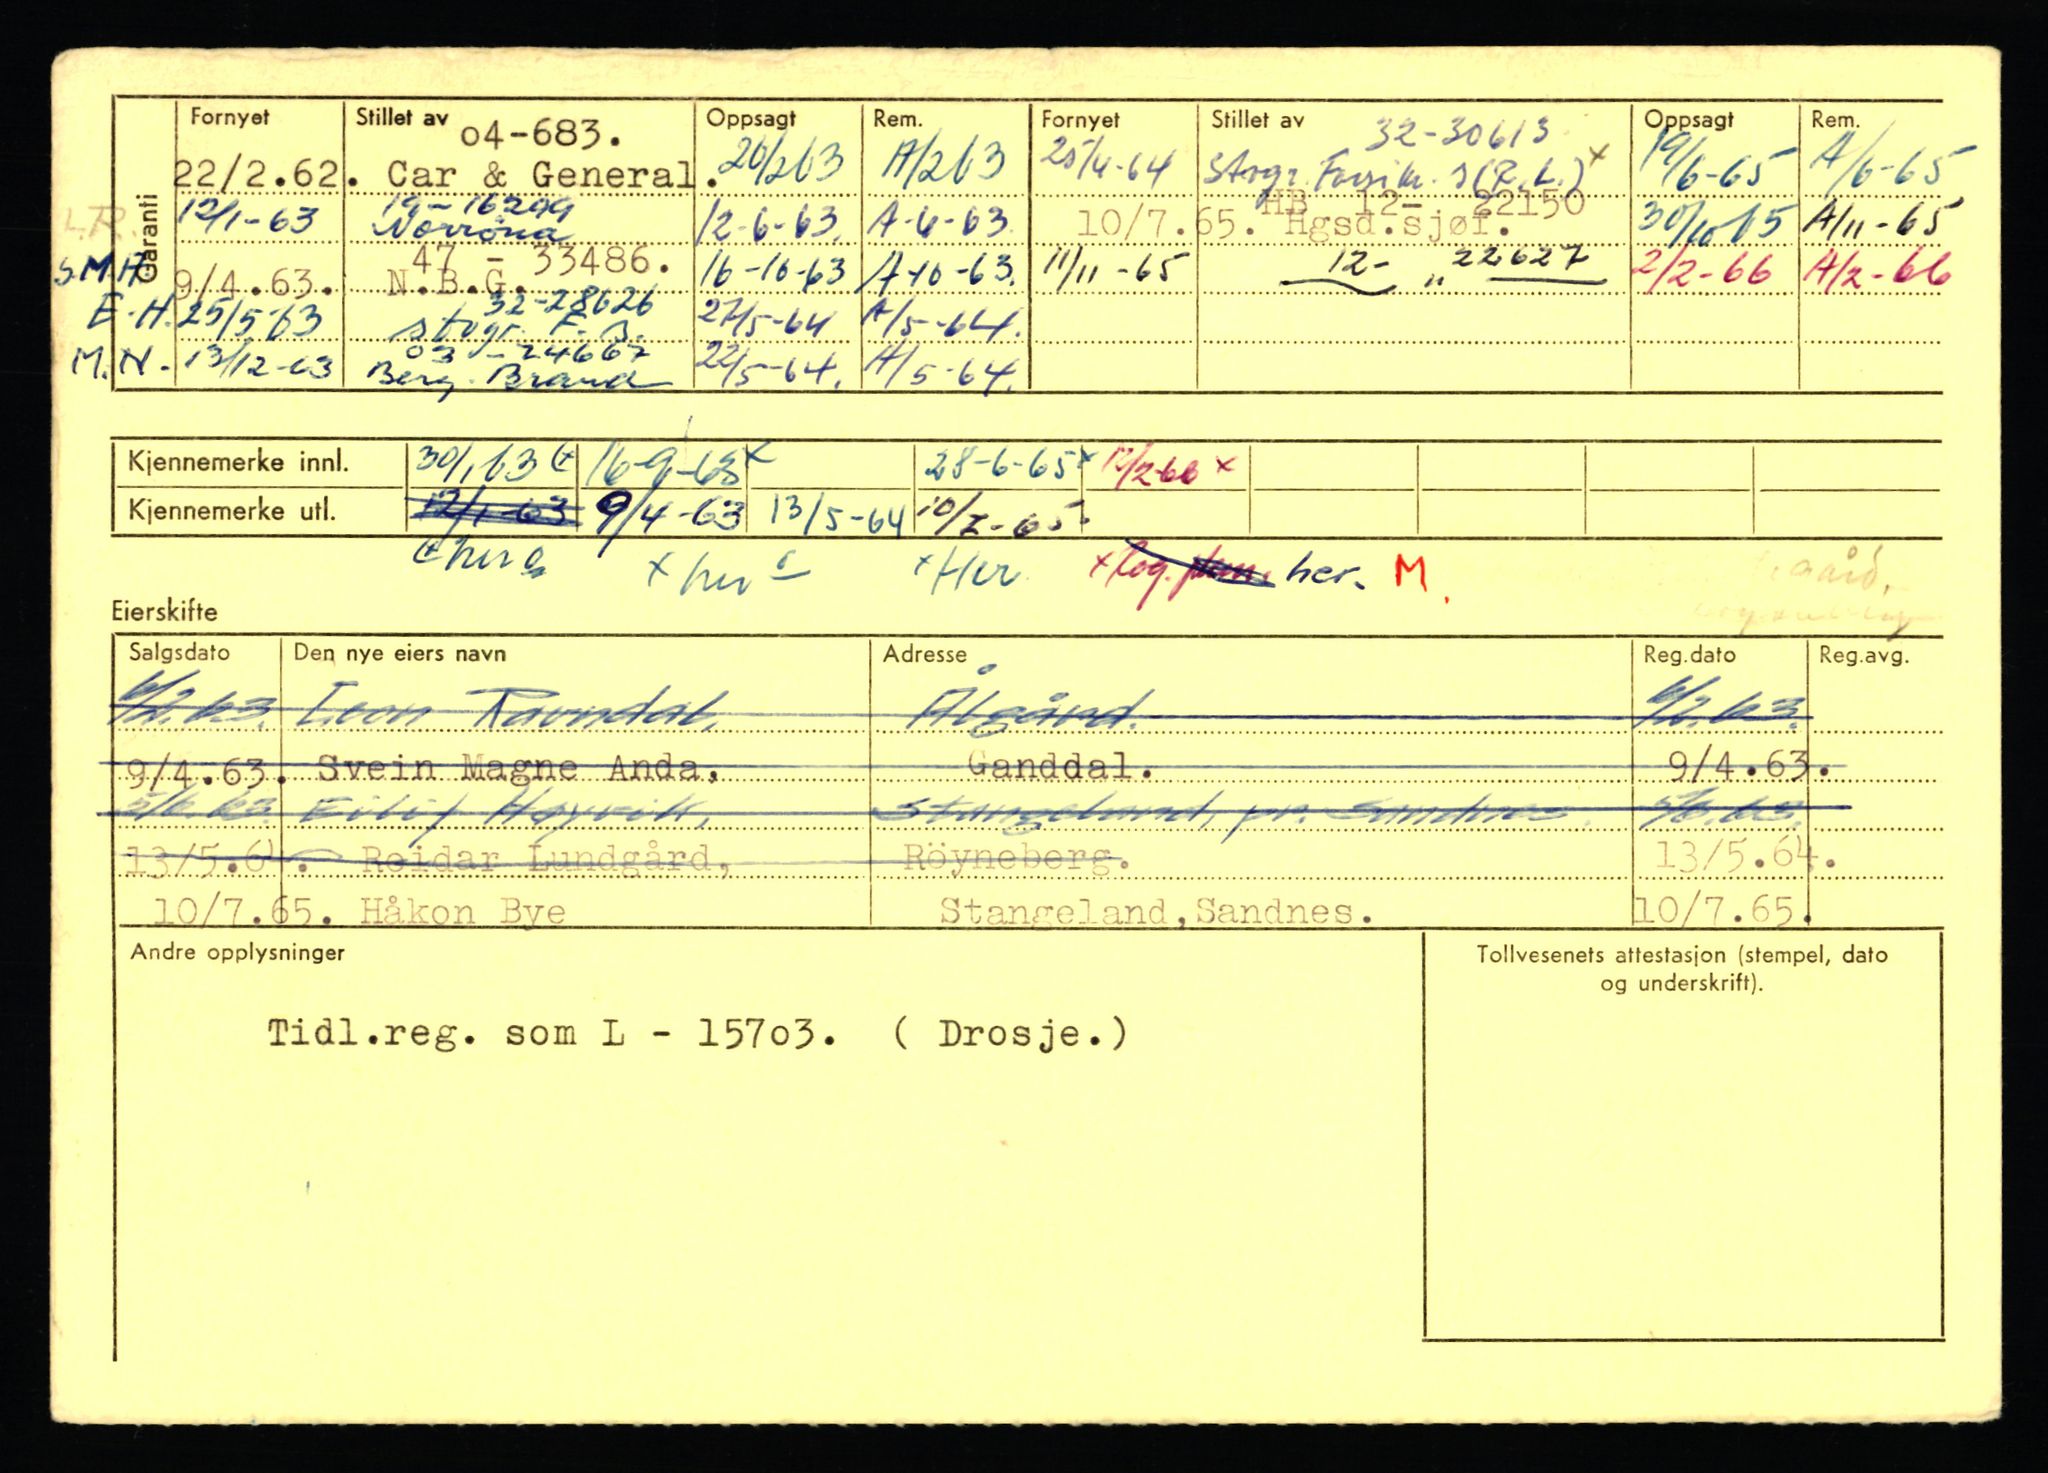 Garanti
Fornyet Stillet av Oppsagt Rem. Fornyet Stillet av Oppsagt Rem.
o4-683. 32-30613
22/2.62. Car & General. 20/2 63 A/2 63 25/4-64 Storgr. Forsik. (R.L.) x 19/6-65 A/6-65
19-16299 HB 12- 22150
L.R. 12/1-63 Norröna 12-6-63. A-6-63. 10/7.65. Hgsd.sjøf. 30/10 65 A/11-65
47 - 33486.
S.M.A. 9/4.63. N.B.G. 16-10-63 A-10-63. 11/11-65 12- " 22627 2/2-66 A/2-66
32-28626
E.H. 25/5-63 Storgr. 27/5-64 A/5-64.
03-24667
M.N. 13/12-63 Berg. Brand 22/5-64. A/5-64.
Kjennemerke innl. 30/1 63 16-9-63 x 28-6-65 x 12/2-66 x
Kjennemerke utl. 12/1-63 9/4-63 13/5-64 10/7-65.
x her x Her x Rog. her. M.
Eierskifte
Salgsdato Den nye eiers navn Adresse Reg.dato Reg.avg.
6/2.63. Leon Ravndal, Ålgård. 6/2.63.
9/4.63. Svein Magne Anda, Ganddal. 9/4.63.
5/6.63 Eilif Høyvik, Stangeland, pr. Sandnes. 5/6.63.
13/5.64. Reidar Lundgård, Röyneberg. 13/5.64.
10/7.65. Håkon Bye Stangeland,Sandnes. 10/7.65.
Andre opplysninger
Tollvesenets attestasjon (stempel, dato
og underskrift).
Tidl.reg. som L - 157o3. ( Drosje.)